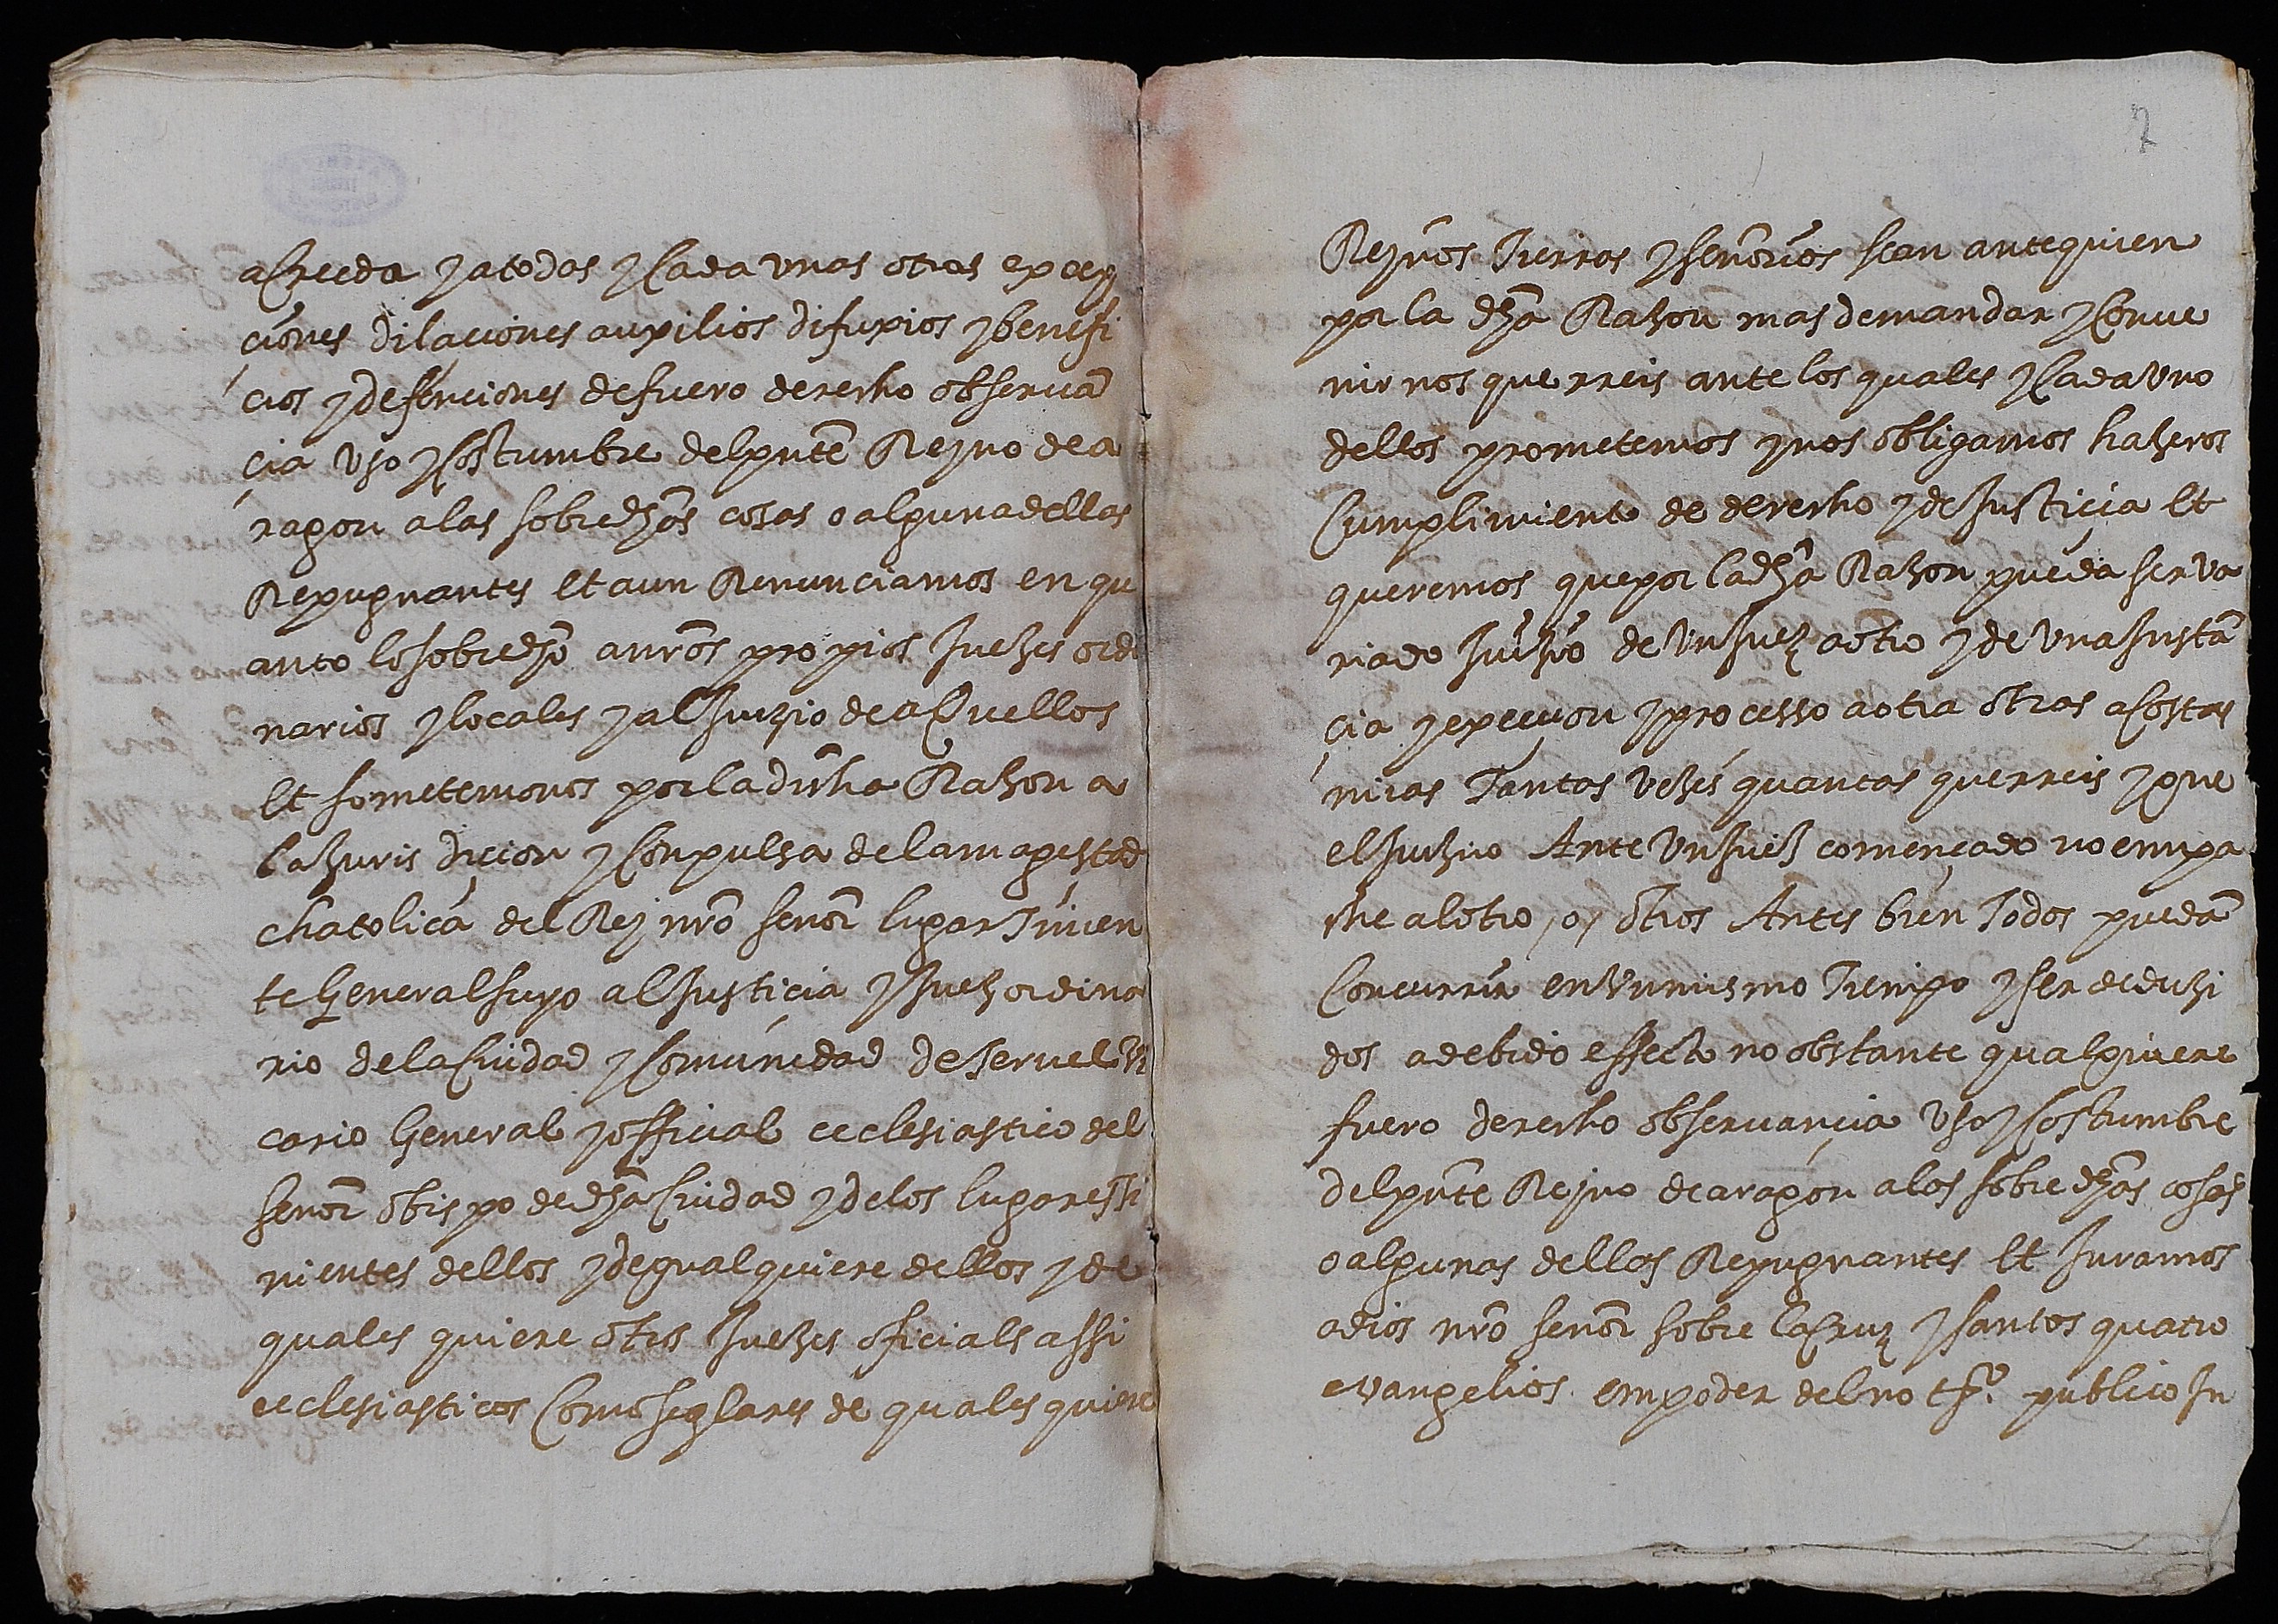 acreeda y a todas y cada unas otras excep
ciones dilaciones auxilios difuxios y benefi
cios y defenciones de fuero derecho obseruã
cia uso y costumbre del pnte Reyno de a
ragon a las sobredhas cosas o alguna dellas
Repugnantes Et aun Renunciamos en qu
anto lo sobredho a nros propios Juezes ordi
narios y locales y al Juizio de aquellos
Et sometemonos por la dicha Razon a
la Juris dicion y Conpulsa de la magestad
chatolica del Rey nro senor lugar Tinien
te General suyo al Justicia y Juez ordina
rio de la Ciudad y Comunidad de Teruel Vi
cario General y official ecclesiastico del
senor obispo de dha Ciudad y de los lugares Ti
nientes dellos y de qual quiere dellos y de
quales quiere otros Juezes oficials assi
ecclesiasticos Como seglares de quales quiere
2
Reynos Tierras y senorios sean ante quien
por la dha Razon mas demandar y Conue
nir nos querreis ante los quales y Cada uno
dellos prometemos y nos obligamos hazeros
Cumplimiento de derecho y de Justicia Et
queremos que por la dha Razon pueda ser va
riado Juizio de un Juez a otro y de una Instã
cia y execucion y processo a otra otras a Costas
mias Tantas vezes quantas querreis y que
el Juizio Ante un Juez començado no empa
che al otro /o/ otros Antes bien Todos puedã
Concurrir en un mismo Tiempo y ser deduzi
dos a debido effecto no obstante qualquiere
fuero derecho obseruancia uso y Costumbre
del pnte Reyno de aragon a las sobre dhas cosas
o algunas dellas Repugnantes Et Juramos
a dios nro senor sobre la Cruz y santos quatro
evangelios en poder del notº. publico In